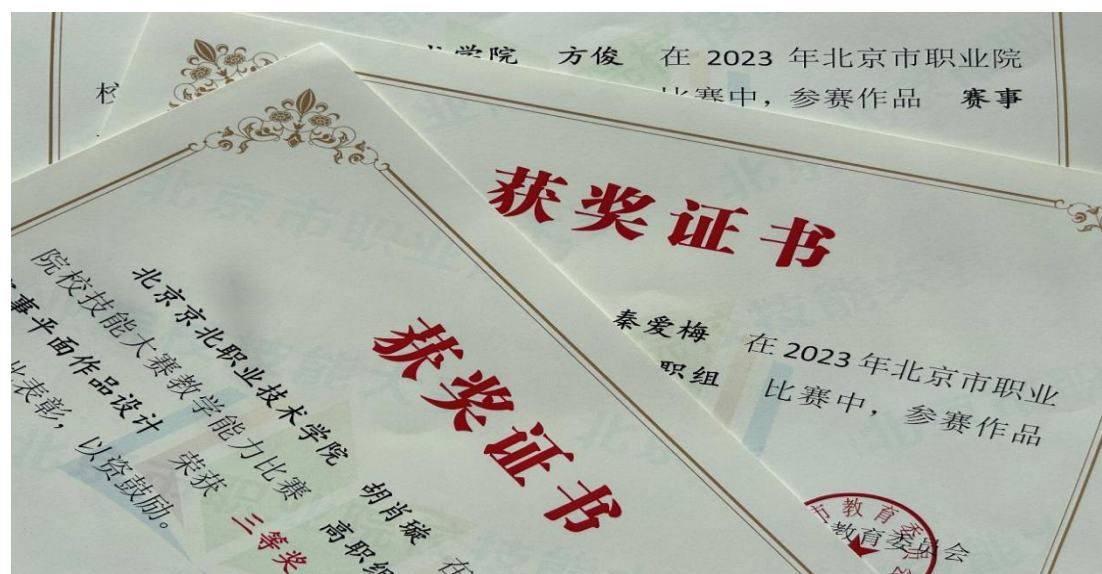 学院 方俊 在 2023 年北京市职业院
校
比赛中，参赛作品 赛事
获奖证书
秦爱梅 在 2023 年北京市职业
职组 比赛中，参赛作品
教育委员会
教育委员会
获奖证书
北京京北职业技术学院 胡肖璇 在
院校技能大赛教学能力比赛 高职组
事平面作品设计 荣获 三等奖
此表彰，以资鼓励。